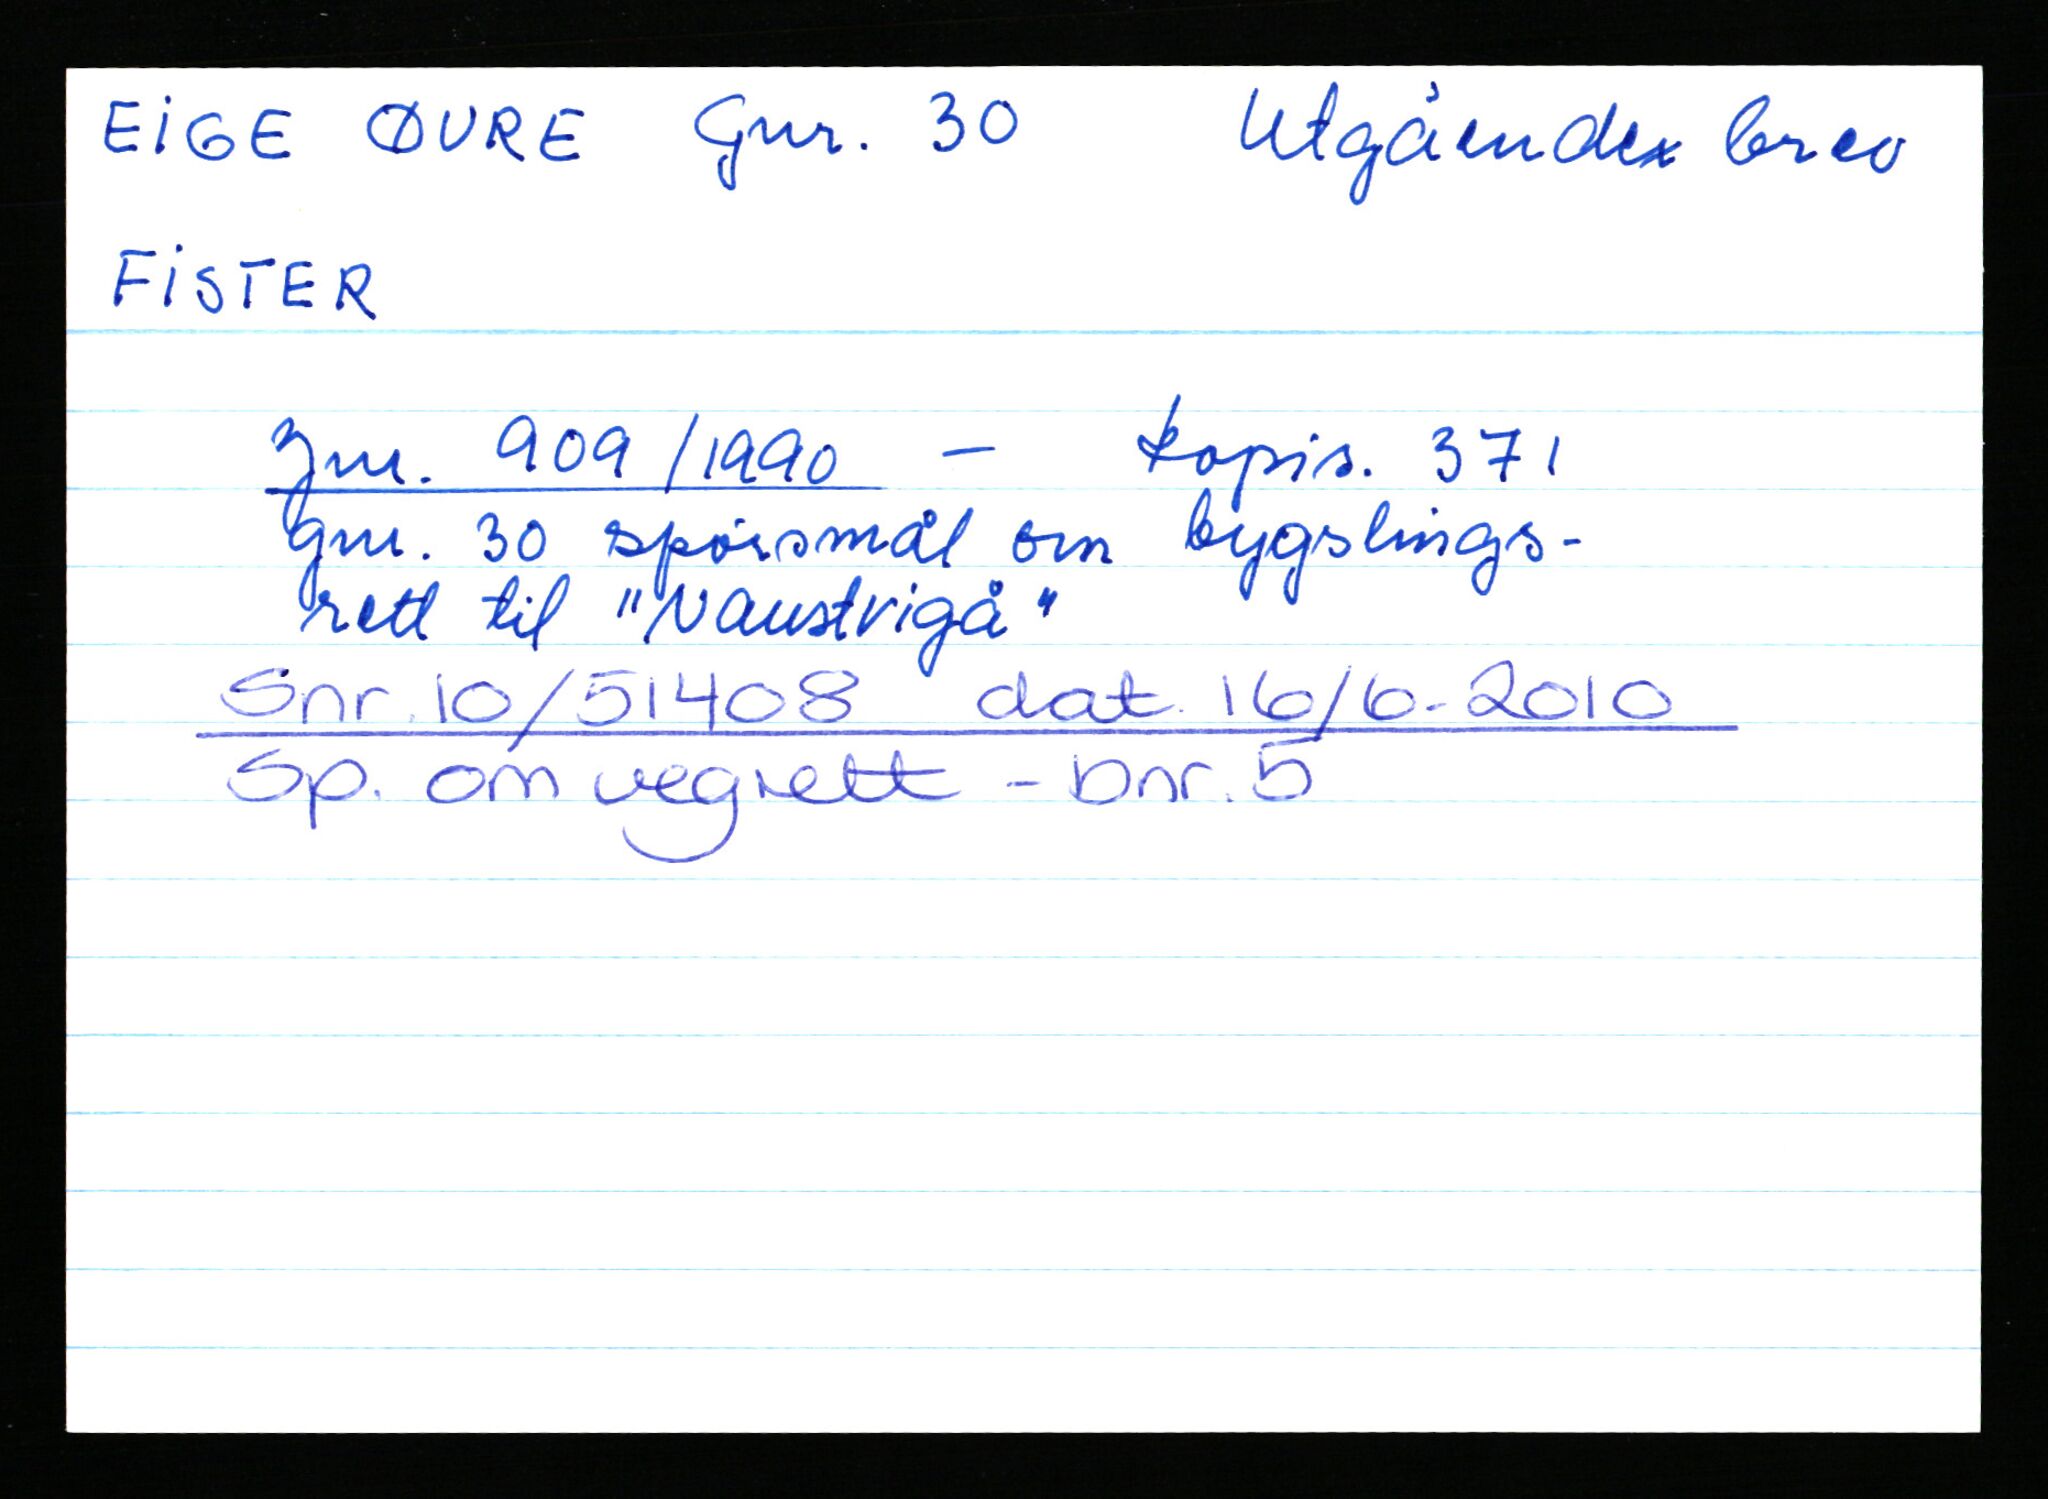 EIGE ØVRE Gnr. 30 Utgående brev
FISTER
Jnr. 909/1990 – kopis. 371
gnr. 30 spørsmål om bygslings-
rett til "Naustvigå"
Snr. 10/51408 dat. 16/6-2010
Sp. om vegrett - bnr. 5